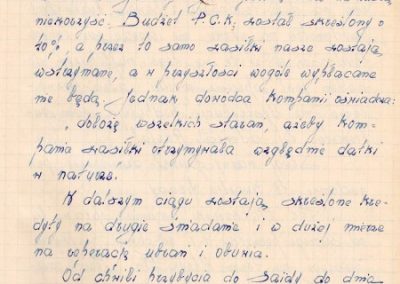 niekorzyść. Budżet P.C.K. został skreślony o
40% a przez to samo zasiłki nasze zostają
wstrzymane, a w przyszłości wogóle wypłacane
nie będą, Jednak dowódca Kompanii oświadcza:
, dołożę wszelkich starań, ażeby kom-
pania zasiłki otrzymywała względnie datki
w naturze.
W dalszym ciągu zostają skreślone kre-
dyty na drugie śniadanie i w dużej mierze
na reperację ubrań i obuwia.
Od chwili przybycia do Saidy do dnia